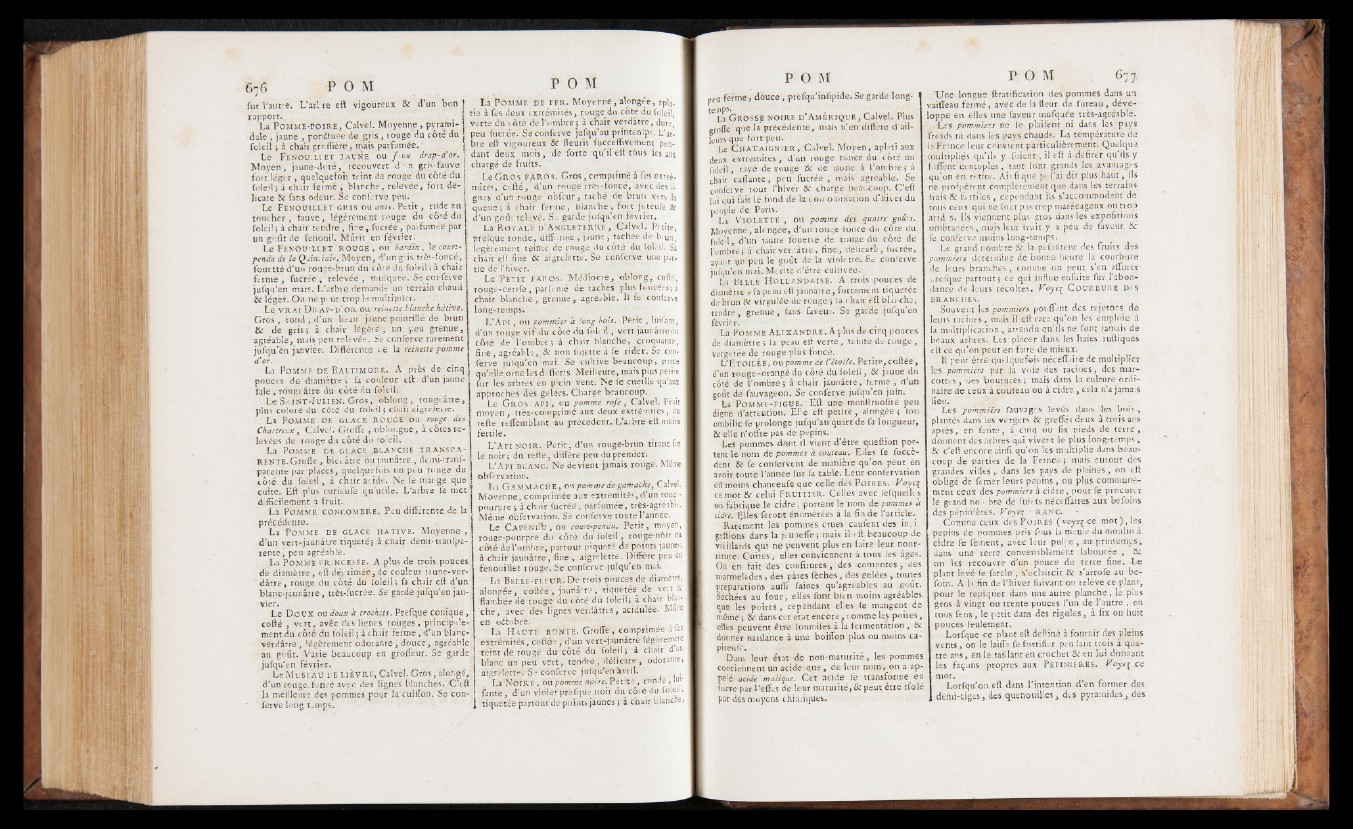 676 POM
sur l'autre. L'arbre est vigoureux & d'un bon
rapport.
La POMME-POIRE, Calvel. Moyenne, pyrami-
dale, jaune, ponctuée de gris, rouge du côté du
soleil; à chair grossière, mais parfumée.
Le FENOUILLET JAUNE ou drap-d'or.
Moyen, jaune-doré, recouvert d'un gris fauve
fort léger, quelquefois teint de rouge du côté du
soleil; à chair ferme, blanche, relevée, fort dé-
licate & sans odeur. Se conserve peu.
Le FENOUILLET GRIS ou anis. Petit, rude au
toucher, fauve, légèrement rouge du côté du
soleil; à chair tendre, fine, sucrée, parfumée par
un goût de fenouil. Mûrit en février.
Le FENOUILLET ROUGE, ou bardin, le court-
pendu de la Quintinie. Moyen, d'un gris très-foncé,
fouetté d'un rouge-brun du côté du soleil; à chair
ferme, sucrée, relevée, musquée. Se conserve
jusqu'en mars. L'arbre demande un terrain chaud
& léger. On ne peut trop le multiplier.
Le VRAI DRAP-D'OR ou reinette blanche hâtive.
Gros, rond, d'un beau jaune pointillé de brun
& de gris; à chair légère, un peu grenue,
agréable, mais peu relevée. Se conserve rarement
jusqu'en janvier. Différente de la reinette pomme
d'or.
La POMME DE BALTIMORE. A près de cinq
pouces de diamètre; sa couleur est d'un jaune
sale, rougeâtre du côté du soleil.
Le SAINT-JULIEN. Gros, oblong, rougeâtre,
plus coloré du côté du soleil; chair aigrelette.
La POMME DE GLACE ROUGE ou rouge des
Chartreux, Calvel. Grosse, oblongue, à côtes re-
levées de rouge du côté du soleil.
La POMME DE GLACE BLANCHE TRANSPA-
RENTE. Grosse, bleuâtre ou jaunâtre, demi-trans-
parente par places, quelquefois un peu rouge du
côté du soleil, à chair acide. Ne se mange que
cuite. Est plus curieuse qu'utile. L'arbre se met
difficilement à fruit.
La POMME CONCOMBRE. Peu différente de la
précédente.
La POMME DE GLACE HATIVE. Moyenne,
d'un vert-jaunâtre tiqueté; à chair demi-transpa-
rente, peu agréable.
La POMME PRINCESSE. A plus de trois pouces
de diamètre, est déprimée, de couleur jaune-ver-
dâtre, rouge du côté du soleil; sa chair est d'un
blanc-jaunâtre, très-sucrée. Se garde jusqu'en jan-
vier.
Le DOUX ou doux à trochets. Presque conique,
costé, vert, avec des lignes rouges, principale-
ment du côté du soleil; à chair ferme, d'un blanc-
verdâtre, légèrement odorante, douce, agréable
au goût. Varie beaucoup en grosseur. Se garde
jusqu'en février.
Le MUSEAU DE LIÈVRE, Calvel. Gros, alongé,
d'un rouge foncé avec des lignes blanches. C'est
la meilleure des pommes pour la cuisson. Se con-
serve long-temps.
POM
La POMME DE FER. Moyenne, alongée, apla-
tie à ses deux extrémités, rouge du côté du soleil,
verte du côté de l'ombre; à chair verdâtre, dure,
peu sucrée. Se conserve jusqu'au printemps. L'ar-
bre est vigoureux & fleurit successivement pen-
dant deux mois, de sorte qu'il est tous les ans
chargé de fruits.
Le GROS FAROS. Gros, comprimé à ses extré-
mités, costé, d'un rouge très-foncé, avec des li-
gnes d'un rouge obscur, taché de brun vers la
queue; à chair ferme, blanche, fort juteuse &
d'un goût relevé. Se garde jusqu'en février.
La ROYALE D'ANGLETERRE, Calvel. Petite,
presque ronde, difforme, jaune, tachée de brun,
légèrement teinte de rouge du côté du soleil. Sa
chair est fine & aigrelette. Se conserve une par-
tie de l'hiver.
Le PETIT FAROS. Médiocre, oblong, costé,
rouge-cerise, parsemé de taches plus foncées; à
chair blanche, grenue, agréable. Il se conserve
long-temps.
L'API, ou pommier à long bois. Petit, luisant,
d'un rouge vif du côté du soleil, vert-jaunâtre du
côté de l'ombre; à chair blanche, croquante,
fine, agréable, & non sujette à se rider. Se con-
serve jusqu'en mai. Se cultive beaucoup, parce
qu'elle orne les desserts. Meilleure, mais plus petite
sur les arbres en plein vent. Ne se cueille qu'aux
approches des gelées. Charge beaucoup.
Le GROS API, ou pomme rose, Calvel. Fruit
moyen, très-comprimé aux deux extrémités, du
reste ressemblant au précédent. L'arbre est moins
fertile.
L'API NOIR. Petit, d'un rouge-brun tirant sur
le noir; du reste, diffère peu du premier.
L'API BLANC. Ne devient jamais rouge. Même
observation.
La GAMMACHE, ou pomme de gamache, Calvel.
Moyenne, comprimée aux extrémités, d'un rouge-
pourpre; à chair sucrée, parfumée, très-agréable.
Même observation. Se conserve toute l'année.
Le CAPENDU, ou court-pendu. Petit, moyen,
rouge-pourpre du côté du soleil, rouge-noir du
côté de l'ombre, partout piqueté de points jaunes;
à chair jaunâtre, fine, aigrelette. Diffère peu du
fenouillet rouge. Se conserve jusqu'en mai.
La BELLE-FLEUR. De trois pouces de diamètre,
alongée, costée, jaunâtre, tiquetée de vert &
flambée de rouge du côté du soleil; à chair blan-
che, avec des lignes verdâtres, acidulée. Mûrit
en octobre.
La HAUTE BONTÉ. Grosse, comprimée à ses
extrémités, costée, d'un vert-jaunâtre légèrement
teint de rouge du côté du soleil; à chair d'un
blanc un peu vert, tendre, délicate, odorante,
aigrelette. Se conserve jusqu'en avril.
La NOIRE, ou pomme noire. Petite, ronde, lui-
sante, d'un violet presque noir du côté du soleil,
tiquetée partout de points jaunes; à chair blanche,
POM
peu ferme, douce, presqu'insipide. Se garde long-
temps.
La GROSSE NOIRE D'AMÉRIQUE, Calvel. Plus
grosse que la précédente, mais n'en diffère d'ail-
leurs que fort peu.
Le CHATAIGNIER, Calvel. Moyen, aplati aux
deux extrémités, d'un rouge foncé du côté du
soleil, rayé de rouge & de jaune à l'ombre; à
chair cassante, peu sucrée, mais agréable. Se
conserve tout l'hiver & charge beaucoup. C'est
lui qui fait le fond de la consommation d'hiver du
peuple de Paris.
La VIOLETTE, ou pomme des quatre goûts.
Moyenne, alongée, d'un rouge foncé du côté du
soleil, d'un jaune fouetté de rouge du côté de
l'ombre; à chair verdâtre, fine, délicate, sucrée,
ayant un peu le goût de la violette. Se conserve
jusqu'en mai. Mérite d'être cultivée.
La BELLE HOLLANDAISE. A trois pouces de
diamètre; sa peau est jaunâtre, fortement tiquetée
de brun & virgulée de rouge; sa chair est blanche,
tendre, grenue, sans saveur. Se garde jusqu'en
février.
La POMME ALIXANDRE. A plus de cinq pouces
de diamètre; la peau est verte, teinte de rouge,
vergetée de rouge plus foncé.
L'ETOILÉE, ou pomme de l'étoile. Petite, costée,
d'un rouge-orangé du côté du soleil, & jaune du
côté de l'ombre; à chair jaunâtre, ferme, d'un
goût de sauvageon. Se conserve jusqu'en juin.
La POMME-FIGUE. Est une monstruosité peu
digne d'attention. Elle est petite, alongée; son
ombilic se prolonge jusqu'au quart de sa longueur,
& elle n'offre pas de pepins.
Les pommes dont il vient d'être question por-
tent le nom de pommes à couteau. Elles se succè-
dent & se conservent de manière qu'on peut en
avoir toute l'année sur sa table. Leur conservation
est moins chanceuse que celle des POIRES. Voyez
ce mot & celui FRUITIER. Celles avec lesquelles
on fabrique le cidre, portent le nom de pommes à
cidre. Elles seront énumérées à la fin de l'article.
Rarement les pommes crues causent des indi-
gestions dans la jeunesse; mais il est beaucoup de
vieillards qui ne peuvent plus en faire leur nour-
riture. Cuites, elles conviennent à tous les âges.
On en fait des confitures, des compotes, des
marmelades, des pâtes sèches, des gelées, toutes
préparations aussi saines qu'agréables au goût.
Séchées au four, elles sont bien moins agréables
que les poires, cependant elles se mangent de
même; & dans cet état encore, comme les poires,
elles peuvent être soumises à la fermentation, &
donner naissance à une boisson plus ou moins ca-
piteuse.
Dans leur état de non-maturité, les pommes
contiennent un acide que, de leur nom, on a ap-
pelé acide malique. Cet acide se transforme en
sucre par l'effet de leur maturité, & peut être isolé
par des moyens chimiques.
POM 677
Une longue stratification des pommes dans un
vaisseau fermé, avec de la fleur de sureau, déve-
loppe en elles une saveur musquée très-agréable.
Les pommiers ne se plaisent ni dans les pays
froids ni dans les pays chauds. La température de
la France leur convient particulièrement. Quelque
multipliés qu'ils y soient, il est à desirer qu'ils y
fussent centuplés, tant sont grands les avantages
qu'on en retire. Ainsi que je l'ai dit plus haut, ils
ne prospèrent complètement que dans les terrains
frais & fertiles, cependant ils s'accommodent de
tous ceux qui ne sont pas trop marécageux ou trop
arides. Ils viennent plus gros dans les expositions
ombragées, mais leur fruit y a peu de saveur &
se conserve moins long-temps.
Le grand nombre & la pesanteur des fruits des
pommiers détermine de bonne heure la courbure
de leurs branches, comme on peut s'en assurer
presque partout; ce qui influe ensuite sur l'abon-
dance de leurs récoltes. Voyez COURBURE DES
BRANCHES.
Souvent les pommiers poussent des rejetons de
leurs racines, mais il est rare qu'on les emploie à
la multiplication, attendu qu'ils ne font jamais de
beaux arbres. Les placer dans les haies rustiques
est ce qu'on peut en faire de mieux.
Il peut être quelquefois nécessaire de multiplier
les pommiers par la voie des racines, des mar-
cottes, des boutures; mais dans la culture ordi-
naire de ceux à couteau ou à cidre, cela n'a jamais
lieu.
Les pommiers sauvages levés dans les bois,
plantés dans les vergers & greffés deux à trois ans
après, en fente, à cinq ou six pieds de terre,
donnent des arbres qui vivent le plus long-temps,
& c'est encore ainsi qu'on les multiplie dans beau-
coup de parties de la France; mais autour des
grandes villes, dans les pays de plaines, on est
obligé de semer leurs pepins, ou plus communé-
ment ceux des pommiers à cidre, pour se procurer
le grand nombre de sujets nécessaires aux besoins
des pépinières. Voyez FRANC.
Comme ceux des POIRES (voyez ce mot), les
pepins de pommes pris sous la meule du moulin à
cidre se sèment, avec leur pulpe, au printemps,
dans une terre convenablement labourée, &
on les recouvre d'un pouce de terre fine. Le
plant levé se sarcle, s'éclaircit & s'arrose au be-
soin. A la fin de l'hiver suivant on relève ce plant,
pour le repiquer dans une autre planche, le plus
gros à vingt ou trente pouces l'un de l'autre, en
tous sens, le petit dans des rigoles, à six ou huit
pouces seulement.
Lorsque ce plant est destiné à fournir des pleins
vents, on le laisse se fortifier pendant trois à qua-
tre ans, en le taillant en crochet & en lui donnant
les façons propres aux PÉPINIÈRES. Voyez ce
mot.
Lorsqu'on est dans l'intention d'en former des
demi-tiges, des quenouilles, des pyramides, des